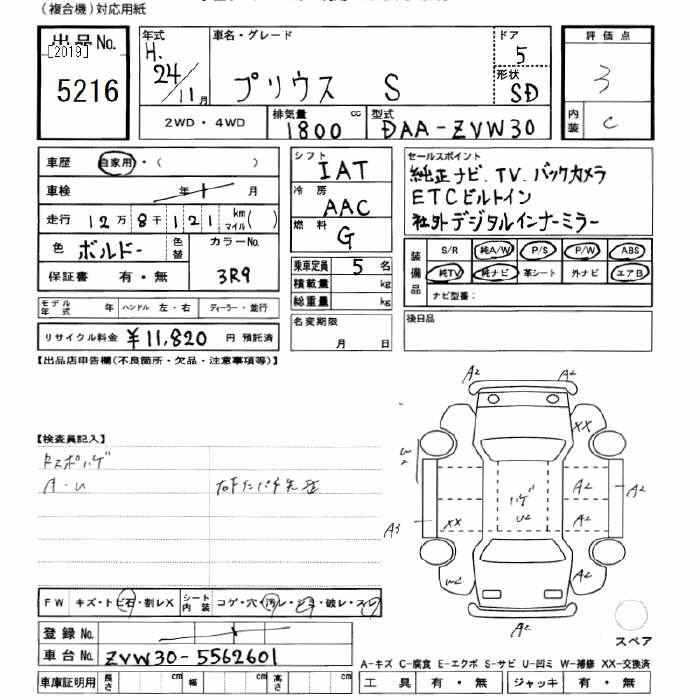 (複合機)対応用紙
出品No.
[2019]
5216
年式 車名・グレード ドア
H. 24/11月 プリウス S 5
形状 SD
2WD・4WD 排気量 1800 cc 型式 DAA-ZVW30
評価点
3
内装 C
車歴 自家用・( )
車検 年 月
走行 12万8千121 km マイル( )
色 ボルドー 色替 カラーNo.
保証書 有・無 3R9
モデル年式 年 ハンドル 左・右 ディーラー・並行
リサイクル料金 ¥11,820 円 預託済
シフト IAT
冷房 AAC
燃料 G
乗車定員 5 名
積載量 kg
総重量 kg
名変期限
月 日
セールスポイント
純正ナビ、TV、バックカメラ
ETCビルトイン
社外デジタルインナーミラー
装備品 S/R 純A/W P/S P/W ABS
純TV 純ナビ 革シート 外ナビ エアB
ナビ型番:
後日品
【出品店申告欄(不良箇所・欠品・注意事項等)】
【検査員記入】
A・U
A2 A2
XX
W2
A2
ハゲ
U2
A2
A2
A3 XX
W2
A2
A2
スペア
FW キズ・トビ石・割レX シート内装 コゲ・穴・汚レ・シミ・破レ・スレ
登録No.
車台No. ZVW30-5562601
車庫証明用 長さ cm 幅 cm 高さ cm
A-キズ C-腐食 E-エクボ S-サビ U-凹ミ W-補修 XX-交換済
工具 有・無 ジャッキ 有・無